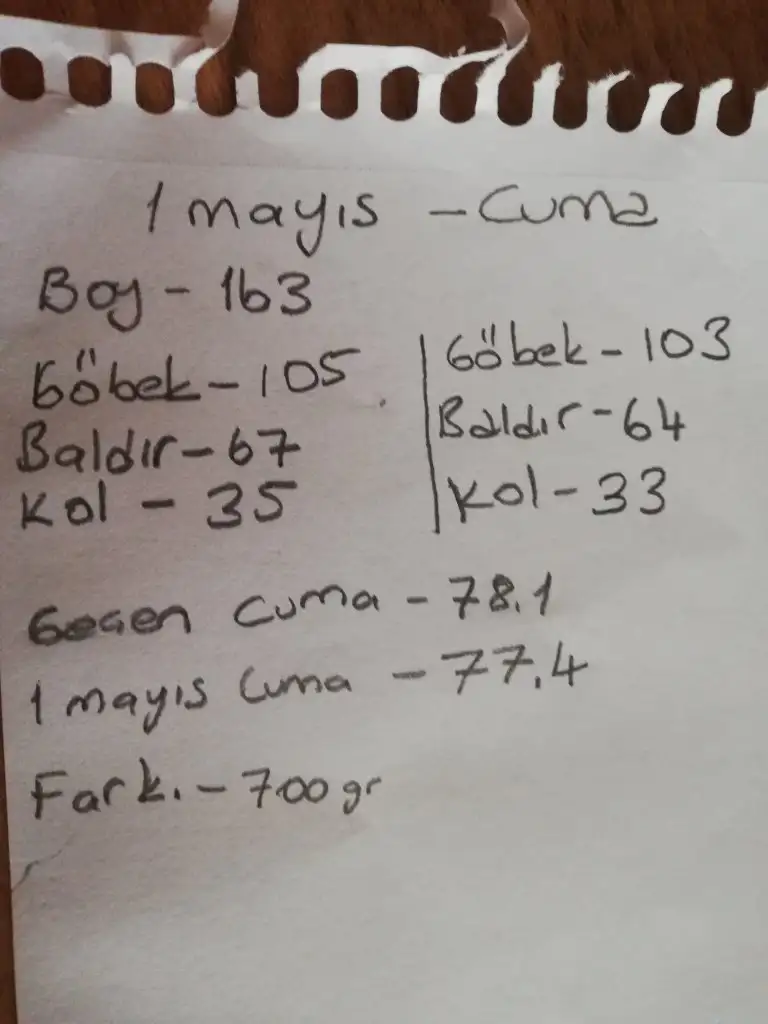 1 mayıs - Cuma
Boy - 163
Göbek - 105
Baldır - 67
Kol - 35
Göbek - 103
Baldır - 64
Kol - 33
Geçen Cuma - 78.1
1 mayıs Cuma - 77.4
Fark. - 700 gr